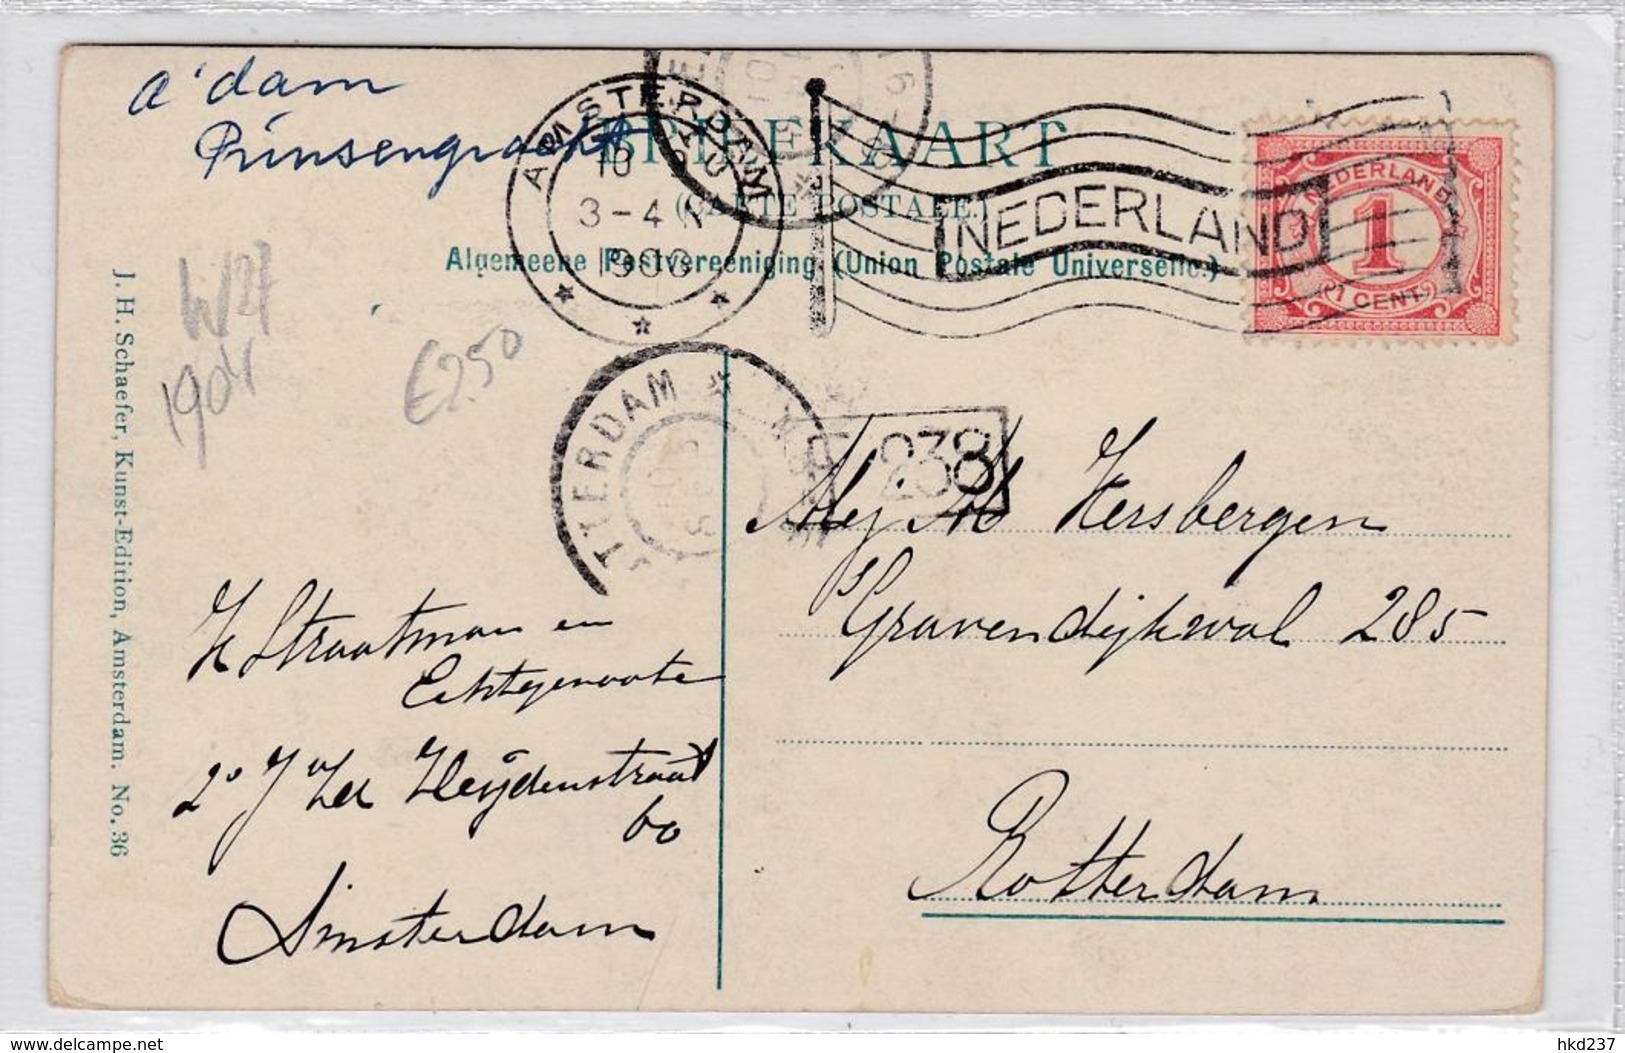 a'dam
Prinsengracht
BRIEFKAART
(CARTE POSTALE.)
Algemeene Postvereeniging (Union Postale Universelle.)
AMSTERDAM
3-4 N
NEDERLAND
NEDERLAND
1
1 CENT
W27
1904
€2.50
J. H. Schaefer, Kunst-Edition, Amsterdam. No. 36
TTERDAM
238
Mej Hersbergen
's Gravendijkwal 285
Rotterdam
H Straatman en
Echtgenoote
2e J v/d Heijdenstraat
60
Amsterdam
www.delcampe.net
hkd237